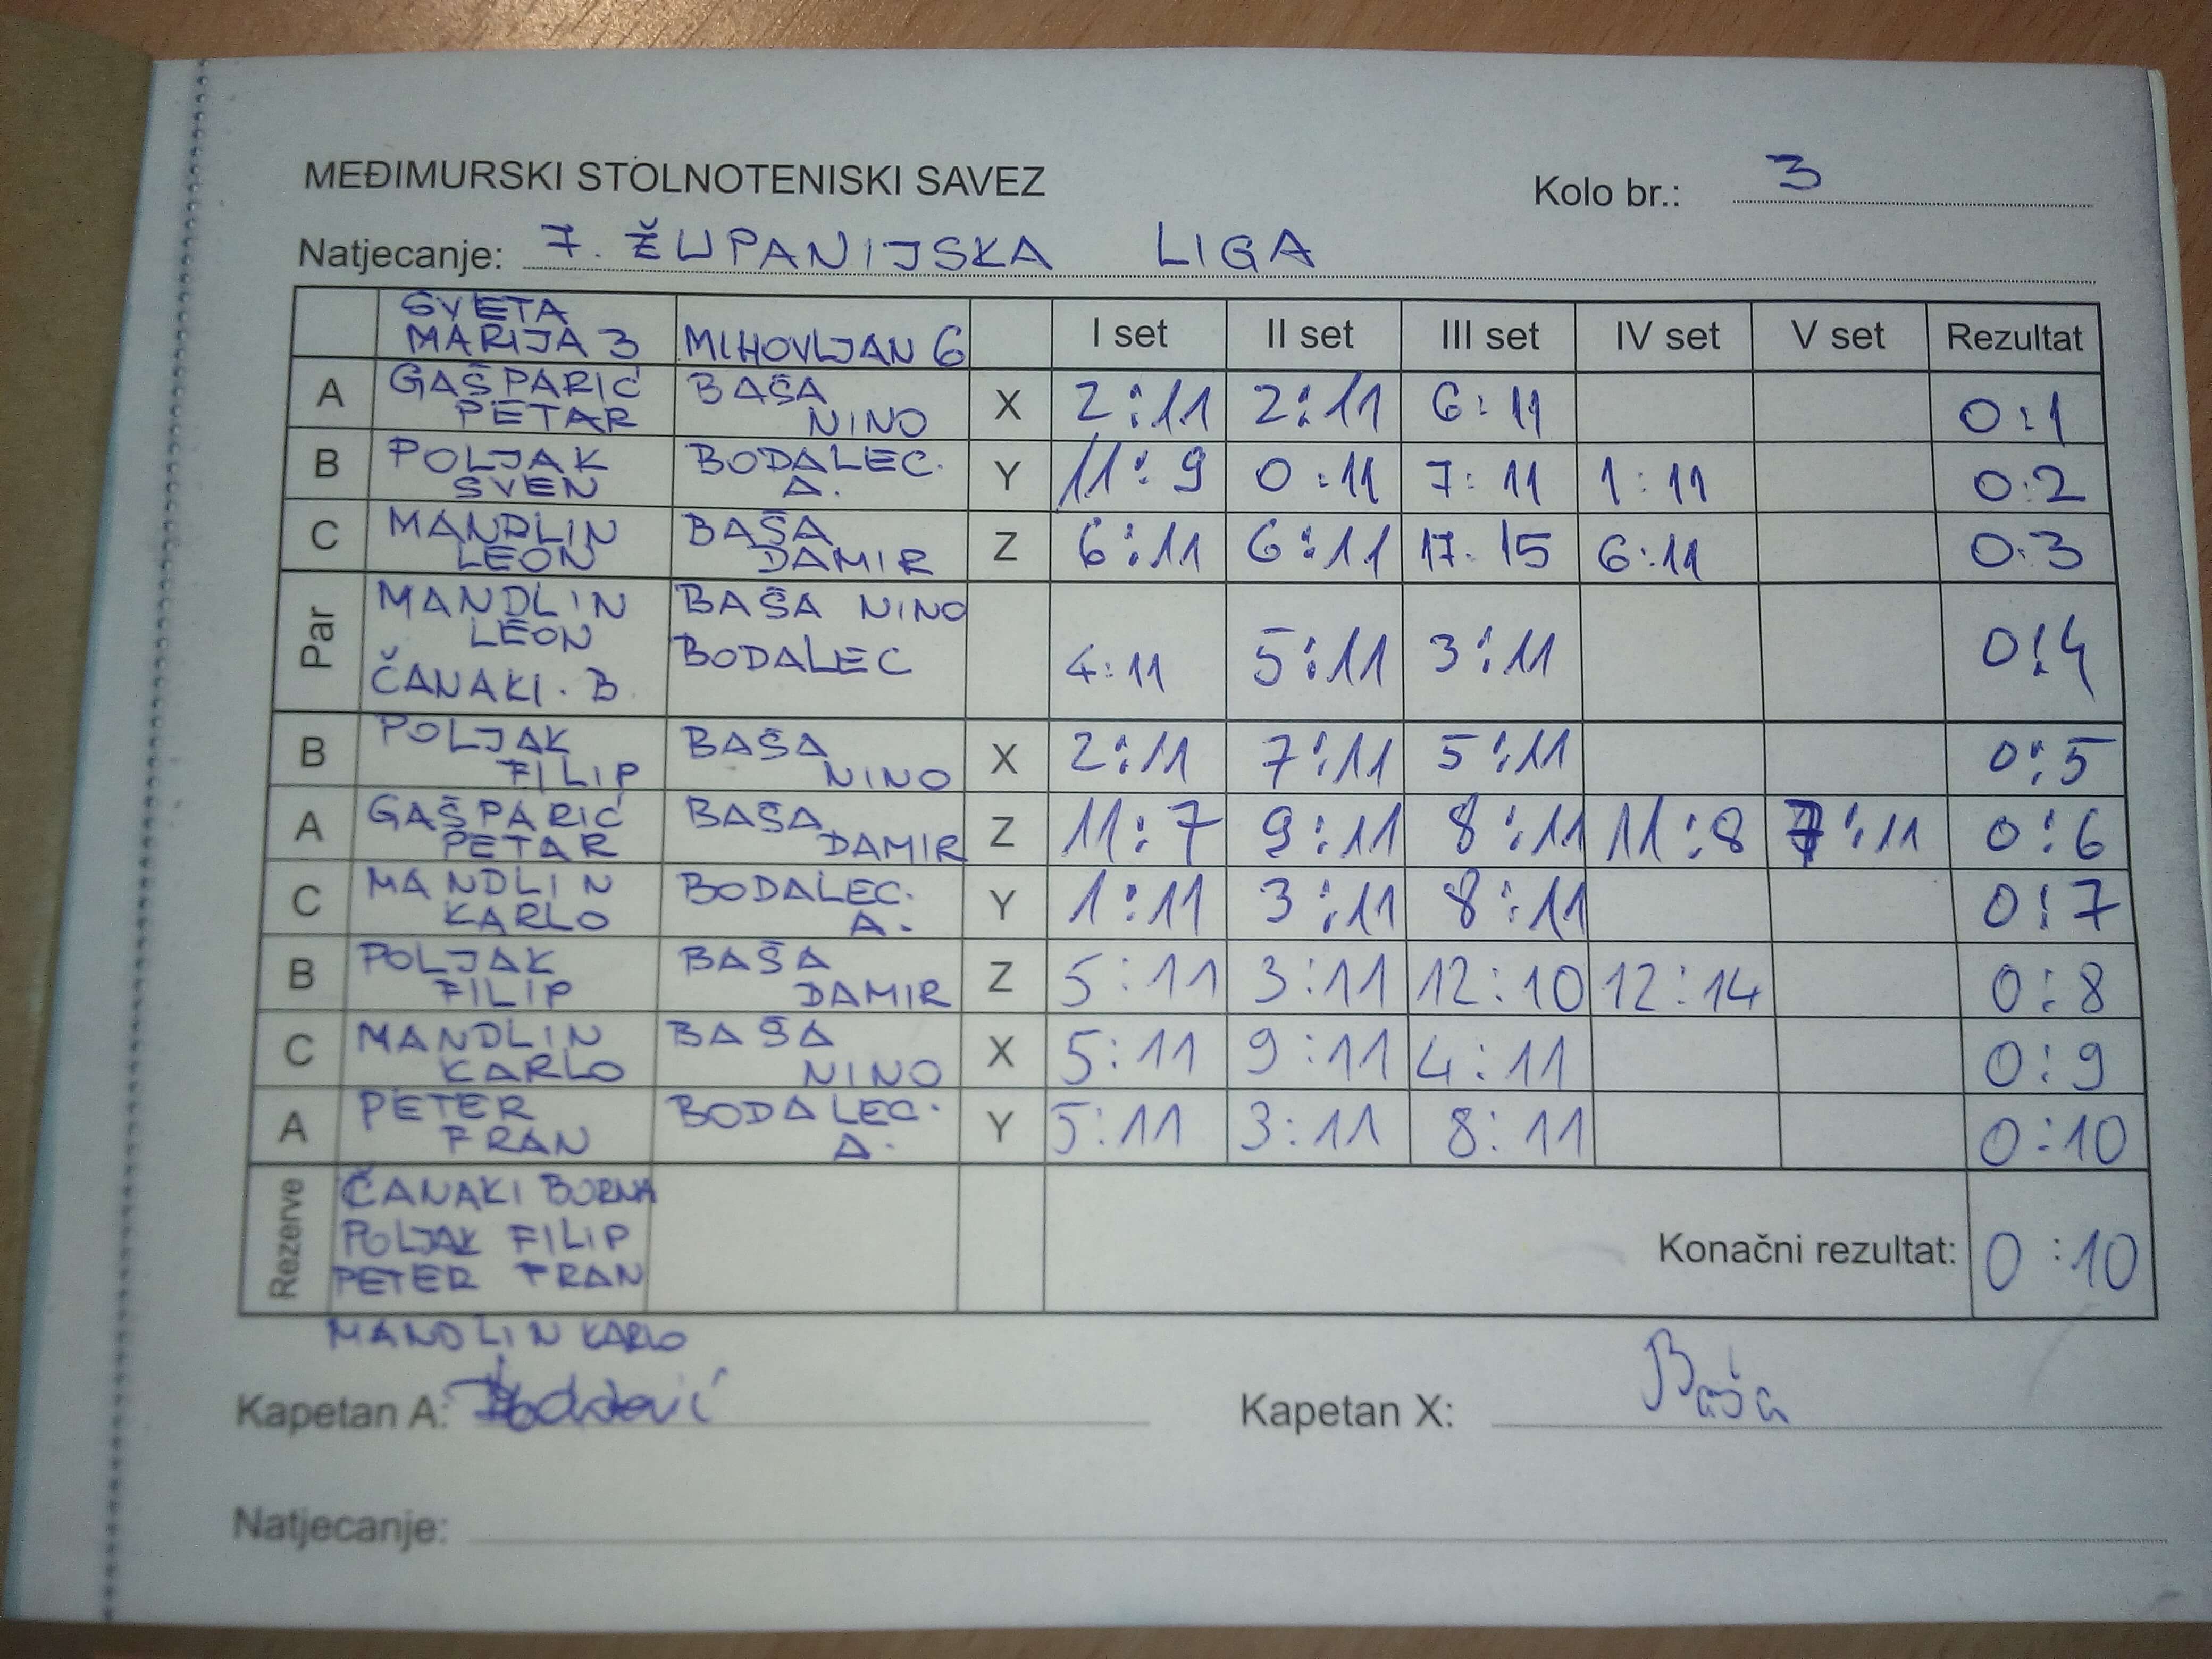 MEĐIMURSKI STOLNOTENISKI SAVEZ
Kolo br.: 3
Natjecanje: 7. ŽUPANIJSKA LIGA
SVETA MARIJA 3 MIHOVLJAN 6 I set II set III set IV set V set Rezultat
A GAŠPARIĆ PETAR BAŠA NINO X 2:11 2:11 6:11 0:1
B POLJAK SVEN BODALEC. A. Y 11:9 0:11 7:11 1:11 0:2
C MANDLIN LEON BAŠA DAMIR Z 6:11 6:11 17:15 6:11 0:3
Par MANDLIN LEON ČANAKI. B. BAŠA NINO BODALEC 4:11 5:11 3:11 0:4
B POLJAK FILIP BAŠA NINO X 2:11 7:11 5:11 0:5
A GAŠPARIĆ PETAR BAŠA DAMIR Z 11:7 9:11 8:11 11:8 7:11 0:6
C MANDLIN KARLO BODALEC. A. Y 1:11 3:11 8:11 0:7
B POLJAK FILIP BAŠA DAMIR Z 5:11 3:11 12:10 12:14 0:8
C MANDLIN KARLO BAŠA NINO X 5:11 9:11 4:11 0:9
A PETER FRAN BODALEC. A. Y 5:11 3:11 8:11 0:10
Rezerve ČANAKI BORNA
POLJAK FILIP
PETER FRAN
Konačni rezultat: 0:10
MANDLIN KARLO
Kapetan A:
Kapetan X: Baša
Natjecanje: